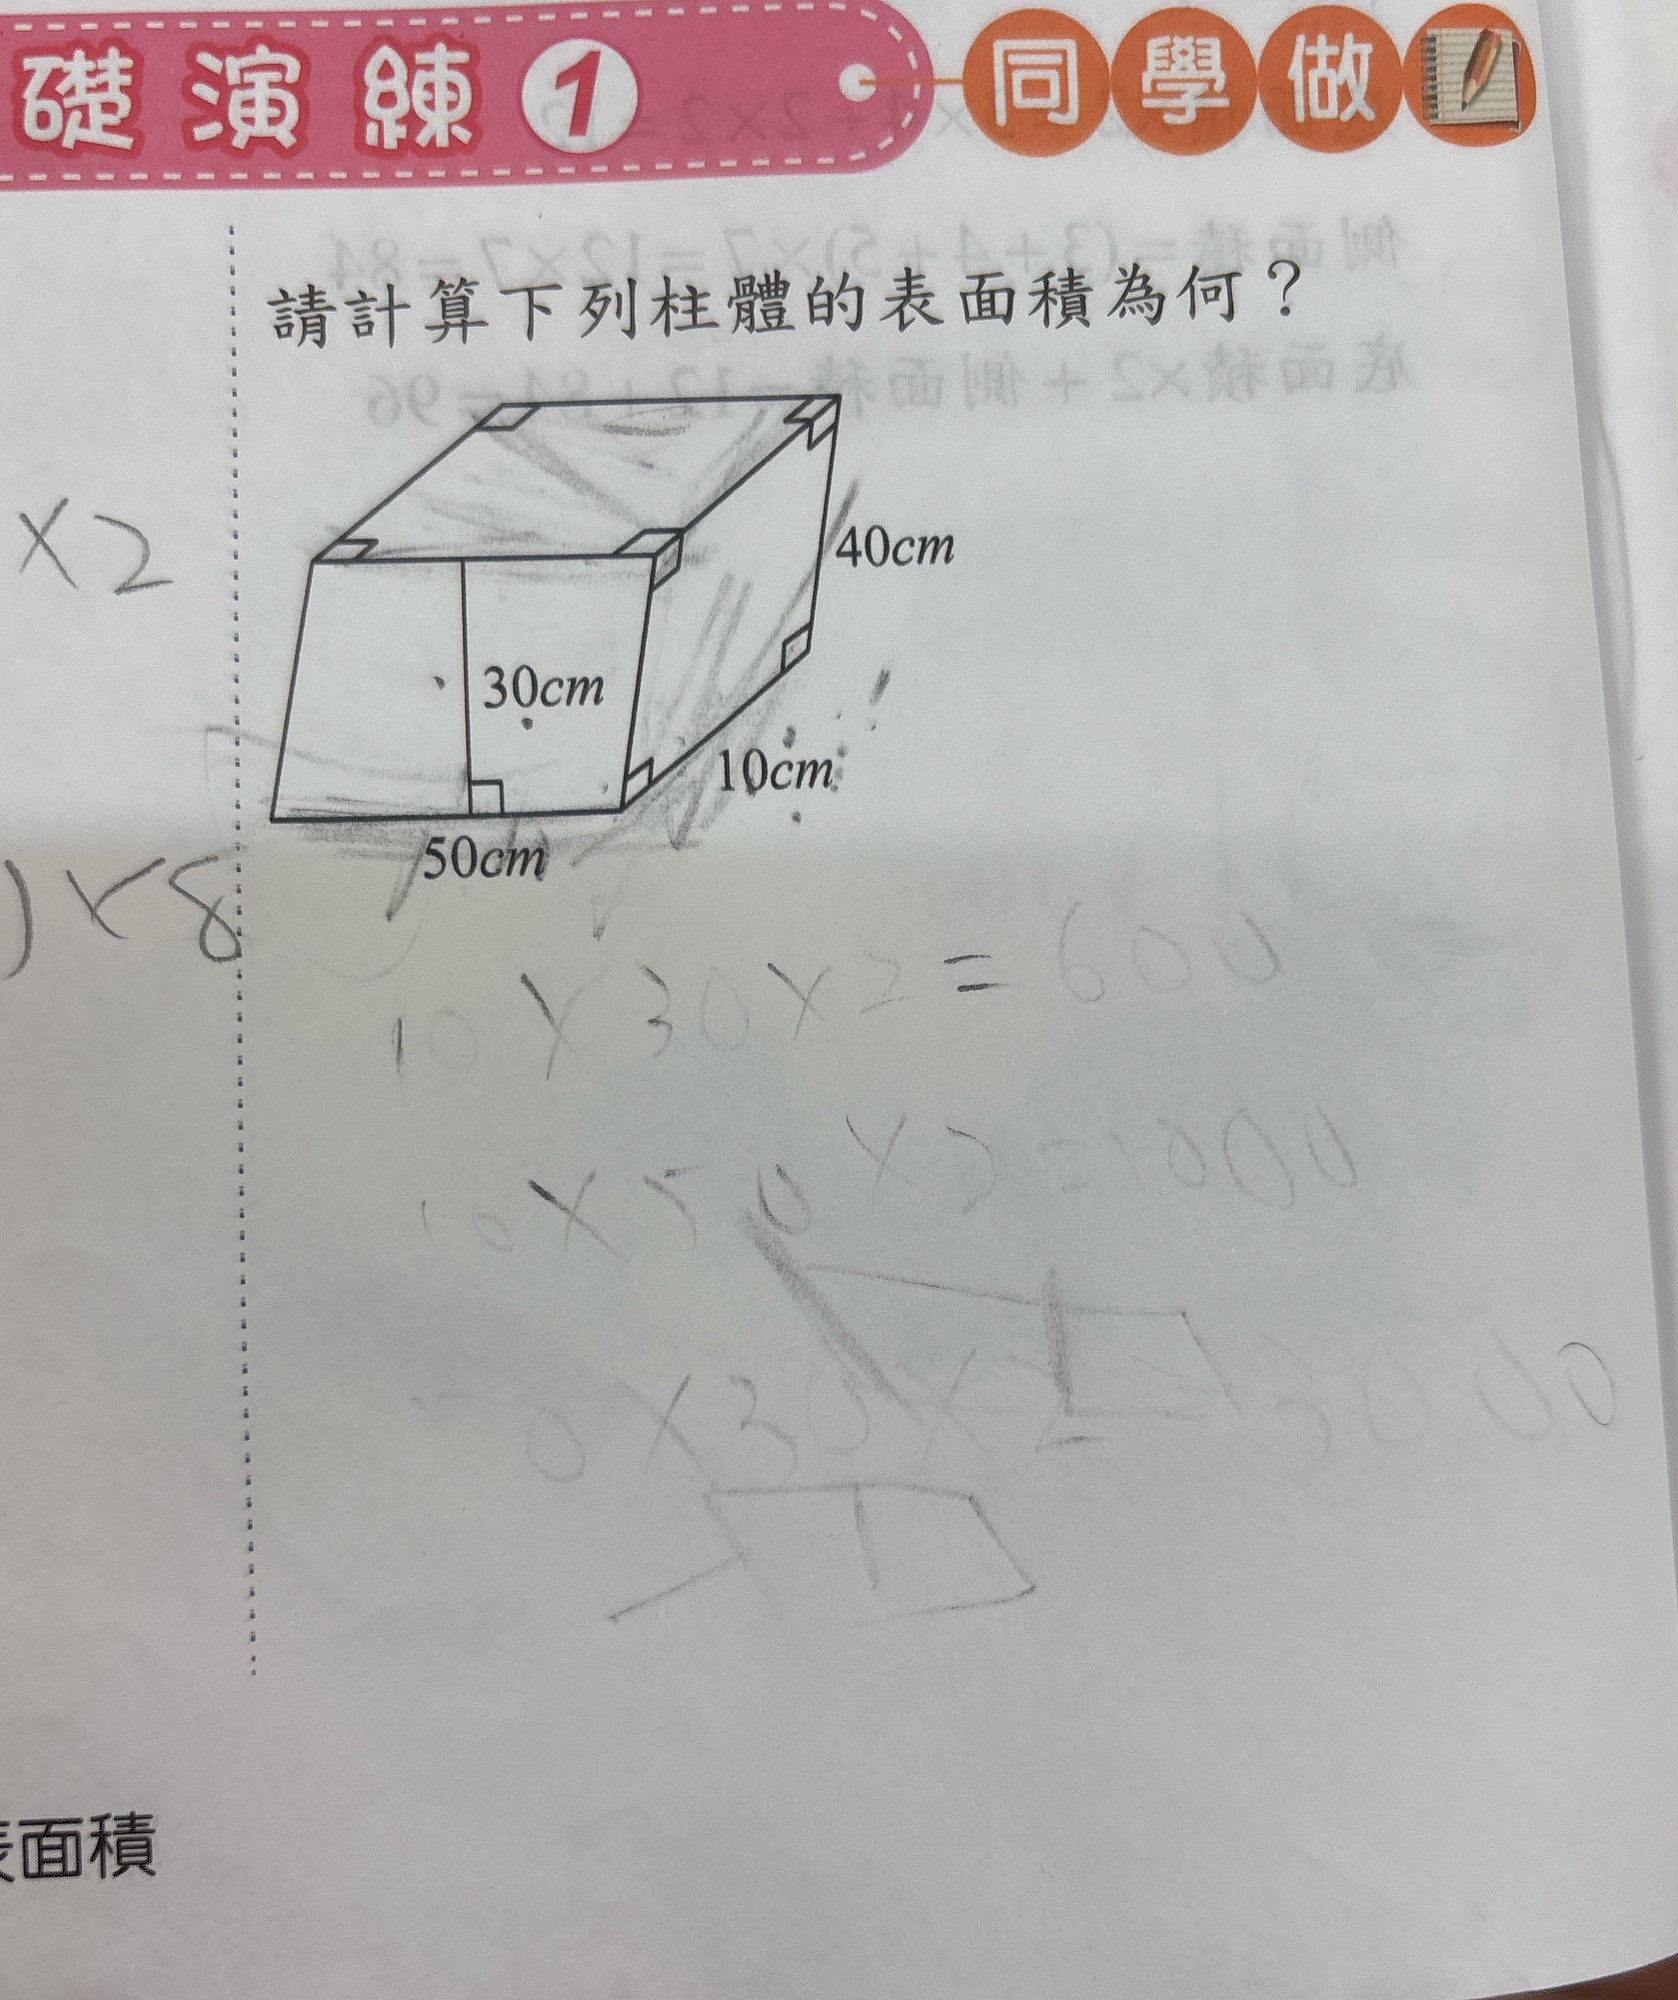 礎演練1 同學做
請計算下列柱體的表面積為何？
×2
40cm
30cm
10cm
50cm
)×8
10×30×2=600
10×50×2=1000
0×30×2=3000
表面積